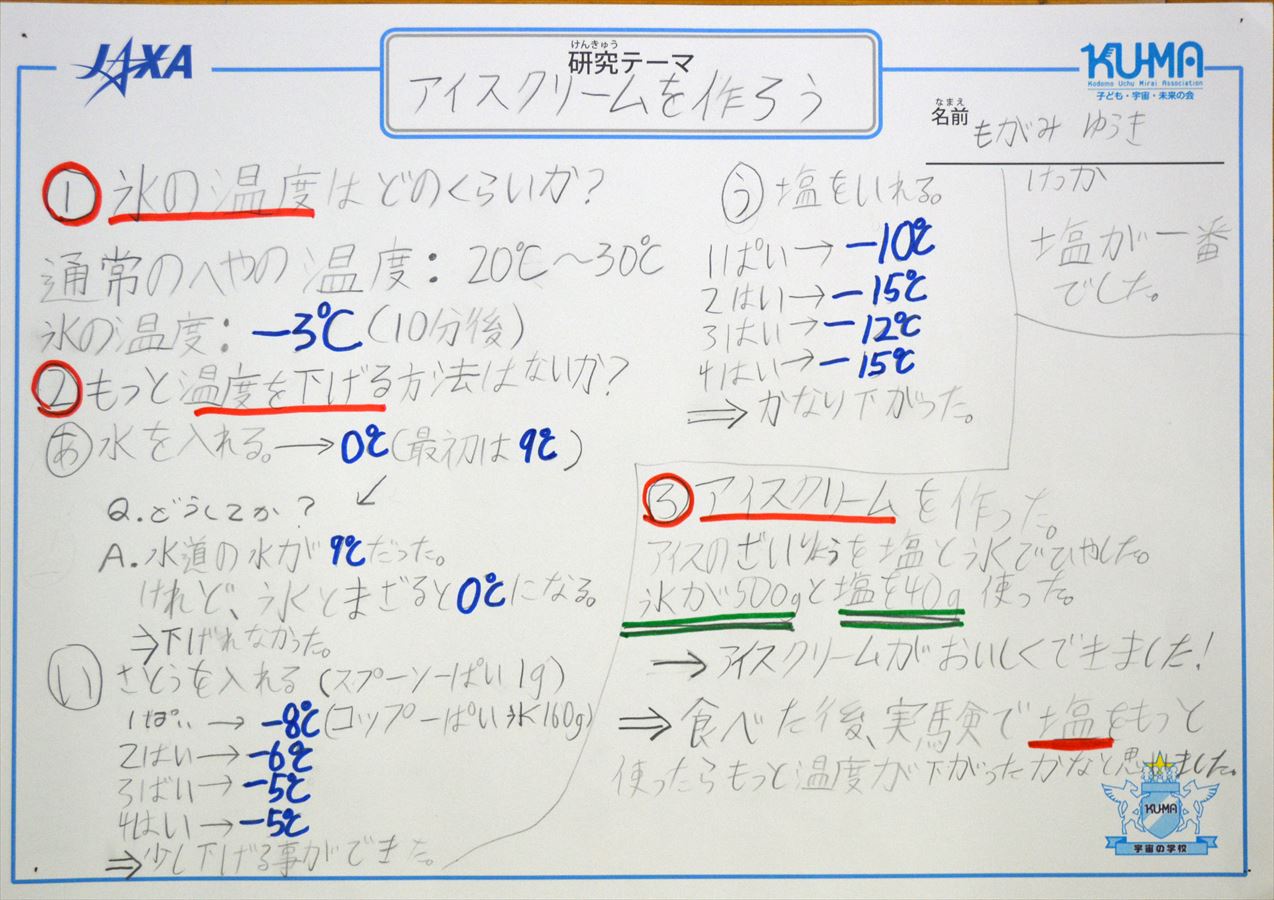 JAXA
けんきゅう
研究テーマ
アイスクリームを作ろう
KU-MA
Kodomo Uchu Mirai Association
子ども・宇宙・未来の会
なまえ
名前 もがみ ゆうき
① 氷の温度はどのくらいか?
通常のへやの温度:20℃〜30℃
氷の温度:-3℃(10分後)
② もっと温度を下げる方法はないか?
あ 水を入れる。→0℃(最初は9℃)
Q.どうしてか?
A.水道の水が9℃だった。
けれど、氷とまざると0℃になる。
⇒下げれなかった。
い さとうを入れる(スプーン一ぱい1g)
1ぱい→-8℃(コップ一ぱい氷160g)
2はい→-6℃
3ばい→-5℃
4はい→-5℃
⇒少し下げる事ができた。
う 塩をいれる。
1ぱい→-10℃
2はい→-15℃
3はい→-12℃
4はい→-15℃
⇒かなり下がった。
けっか
塩が一番
でした。
③ アイスクリームを作った。
アイスのざいりょうを塩と氷でひやした。
氷が500gと塩を40g使った。
→アイスクリームがおいしくできました!
⇒食べた後、実験で塩をもっと
使ったらもっと温度が下がったかなと思いました。
KU-MA
宇宙の学校